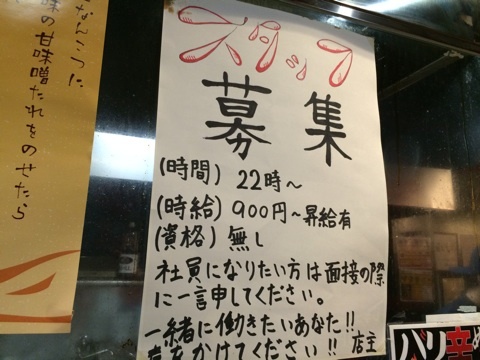 スタッフ
募集
(時間) 22時～
(時給) 900円～昇給有
(資格) 無し
社員になりたい方は面接の際
に一言申してください。
一緒に働きたいあなた!!
声をかけてください!! 店主
なんこつに
味の甘味噌たれをのせたら
バリ辛